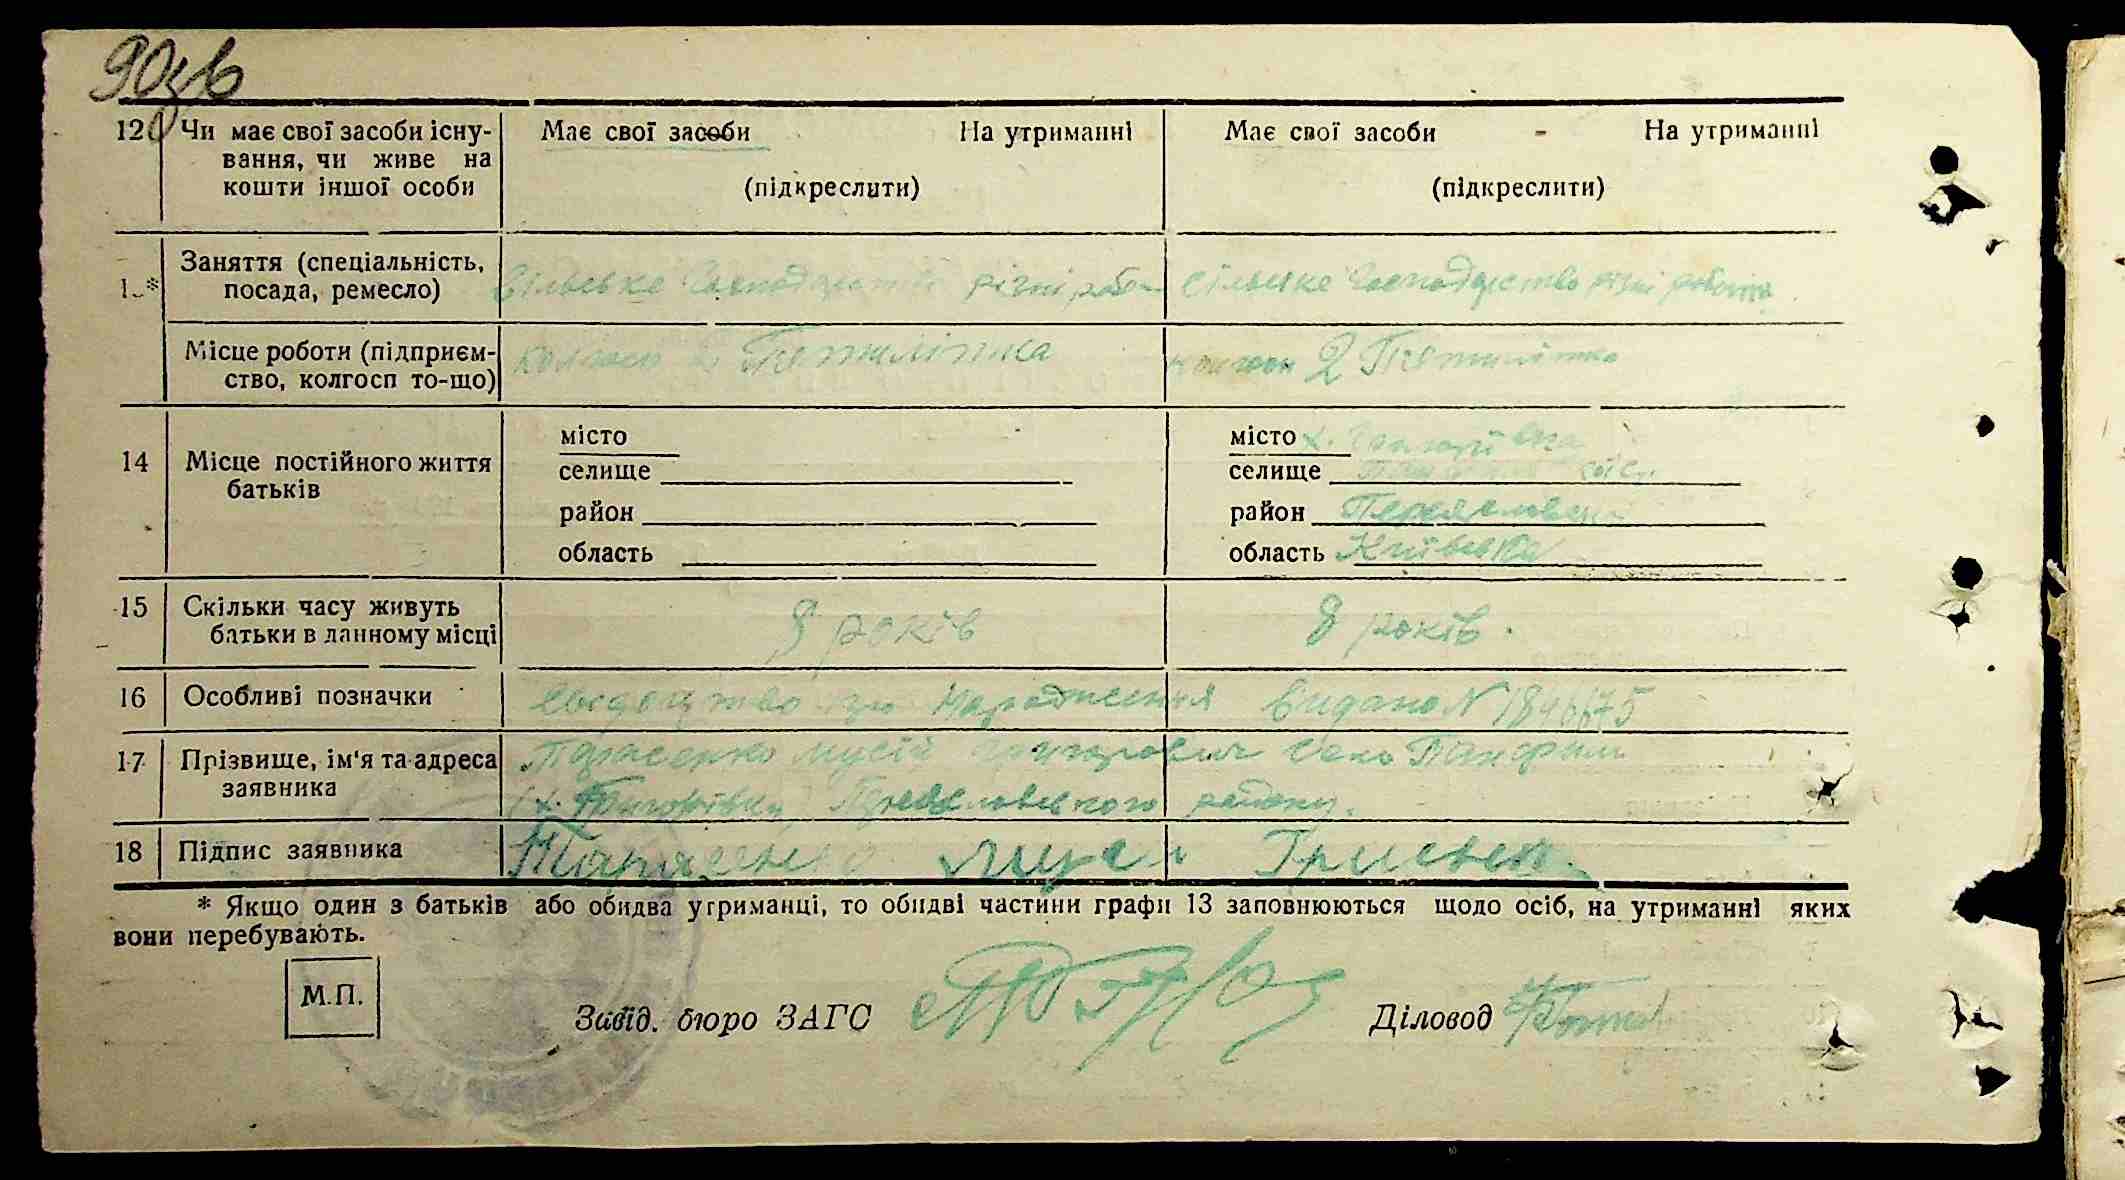 90зв
12 Чи має свої засоби існу- Має свої засоби На утриманні Має свої засоби - На утриманні
вання, чи живе на
кошти іншої особи (підкреслити) (підкреслити)
Заняття (спеціальність,
1 * посада, ремесло) сільське господарство різні робо сільське господарство різні роботи
Місце роботи (підприєм- колгосп 2 Пятилітка колгосп 2 Пятилітка
ство, колгосп то-що)
місто місто х.
14 Місце постійного життя селище селище
батьків район район Переяславськ
область область Київська
15 Скільки часу живуть 8 років 8 років.
батьки в данному місці
16 Особливі позначки свідоцтво про народження видано N
17 Прізвище, ім'я та адреса Тарасенко Мусій Григорович село Панфили
заявника х. Переяславського району.
18 Підпис заявника Тарасенко Мусій
* Якщо один з батьків або обидва утриманці, то обидві частини графи 13 заповнюються щодо осіб, на утриманні яких
вони перебувають.
М.П.
Завід. бюро ЗАГС Діловод